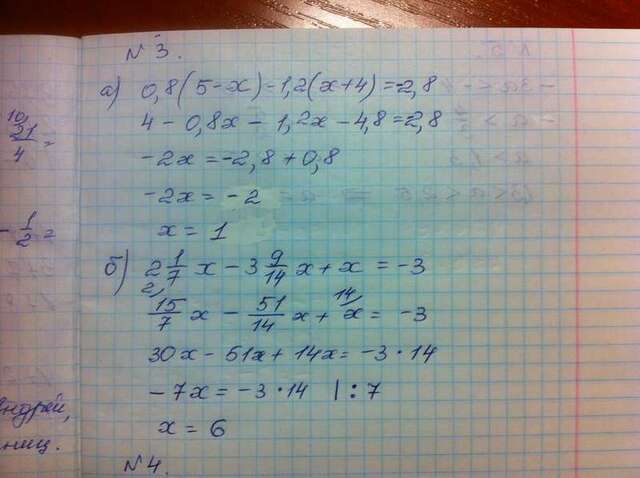 N 3.
а) 0,8(5-x)-1,2(x+4)=-2,8
4-0,8x-1,2x-4,8=-2,8
-2x=-2,8+0,8
-2x=-2
x=1
б) 2 1/7 x - 3 9/14 x + x = -3
2/ 15/7 x - 51/14 x + 14/ x = -3
30x-51x+14x=-3·14
-7x=-3·14 |:7
x=6
N 4.
10
21/4 =
- 1/2 =
ндрей,
ниц.